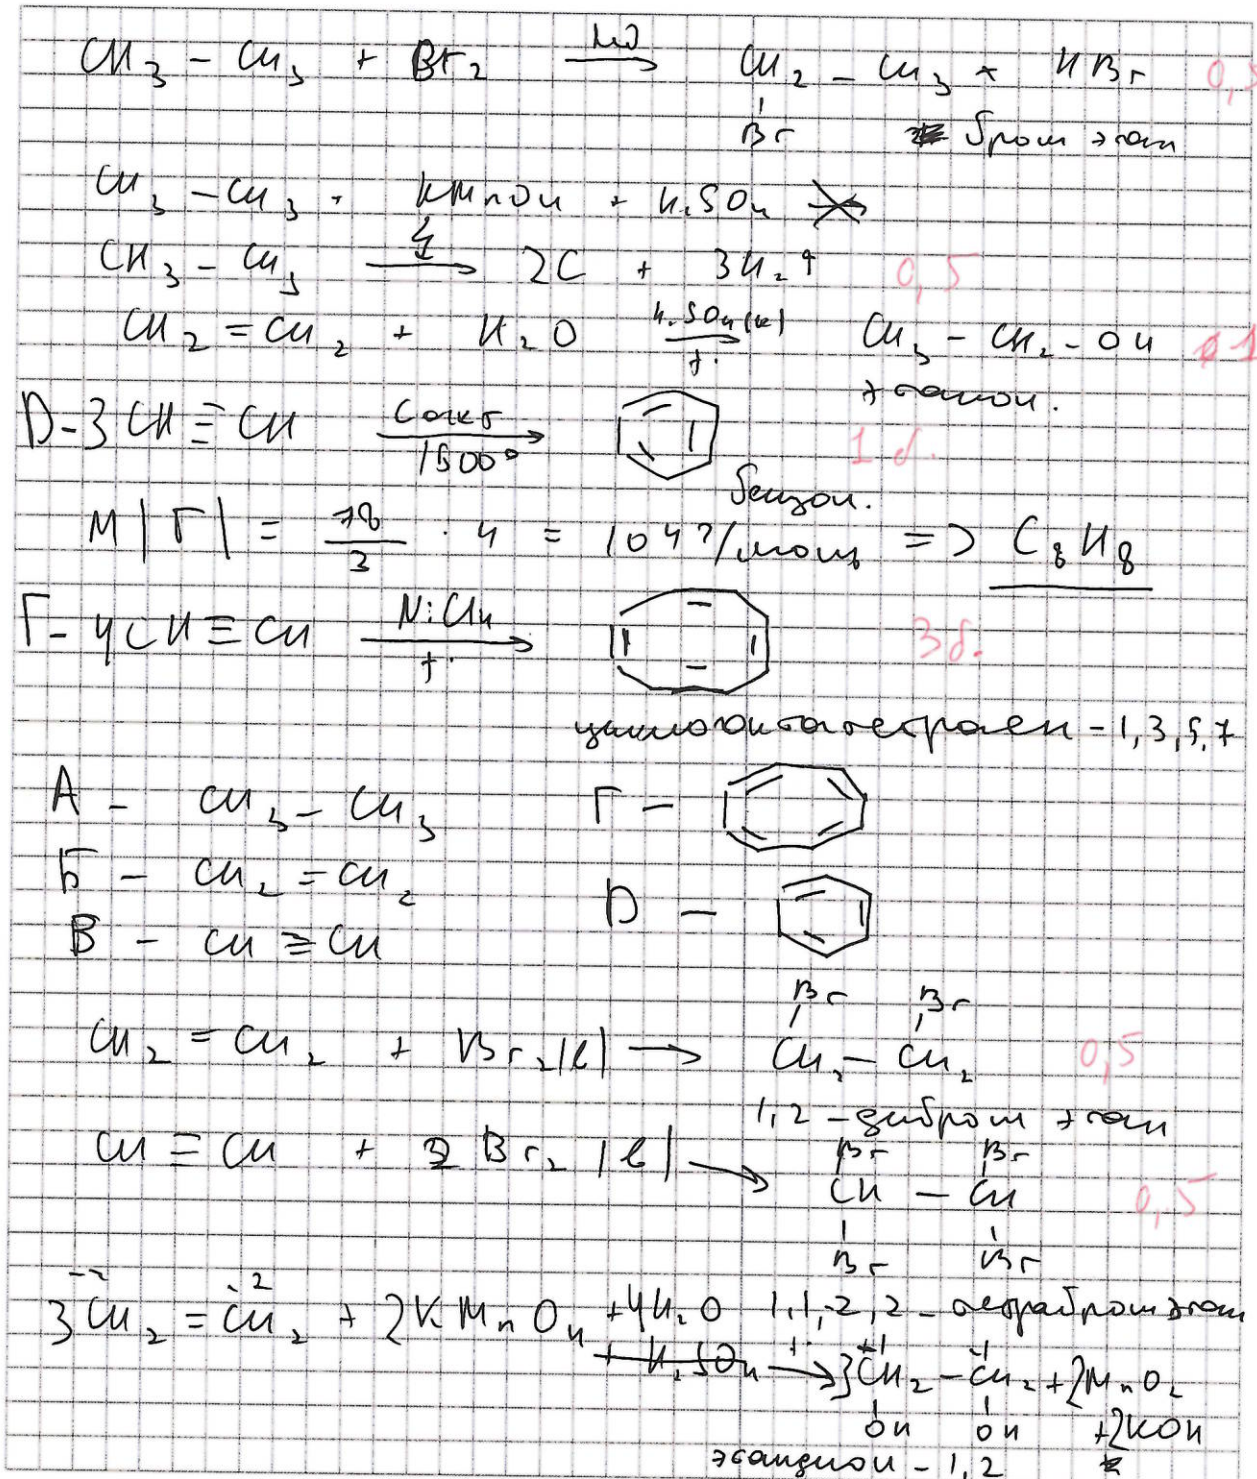 CH₃ – CH₃ + Br₂ → CH₂ – CH₃ + HBr 0,5
Br бромэтан
CH₃ – CH₃ + KMnO₄ + H₂SO₄
CH₃ – CH₃ → 2C + 3H₂↑ 0,5
CH₂ = CH₂ + H₂O H₂SO₄(к) → t° CH₃ – CH₂ – OH 1
этанол.
D – 3CH ≡ CH Cакт → 1500° 1 б.
бензол.
M(Г) = 78/3 · 4 = 104 г/моль => C₈H₈
Г – 4CH ≡ CH NiCl₄ → t° 3б.
циклооктатетраен – 1,3,5,7
А – CH₃ – CH₃ Г –
Б – CH₂ = CH₂ D –
В – CH ≡ CH
Br Br
CH₂ = CH₂ + Br₂(в) → CH₂ – CH₂ 0,5
1,2 – дибром этан
Br Br
CH ≡ CH + 2Br₂ (в) → CH – CH 0,5
Br Br
3CH₂⁻² = CH₂⁻² + 2KMnO₄ + 4H₂O 1,1,2,2 – тетрабромэтан
+ H₂SO₄ → 3CH₂ – CH₂ + 2MnO₂
OH OH + 2KOH
этандиол – 1,2